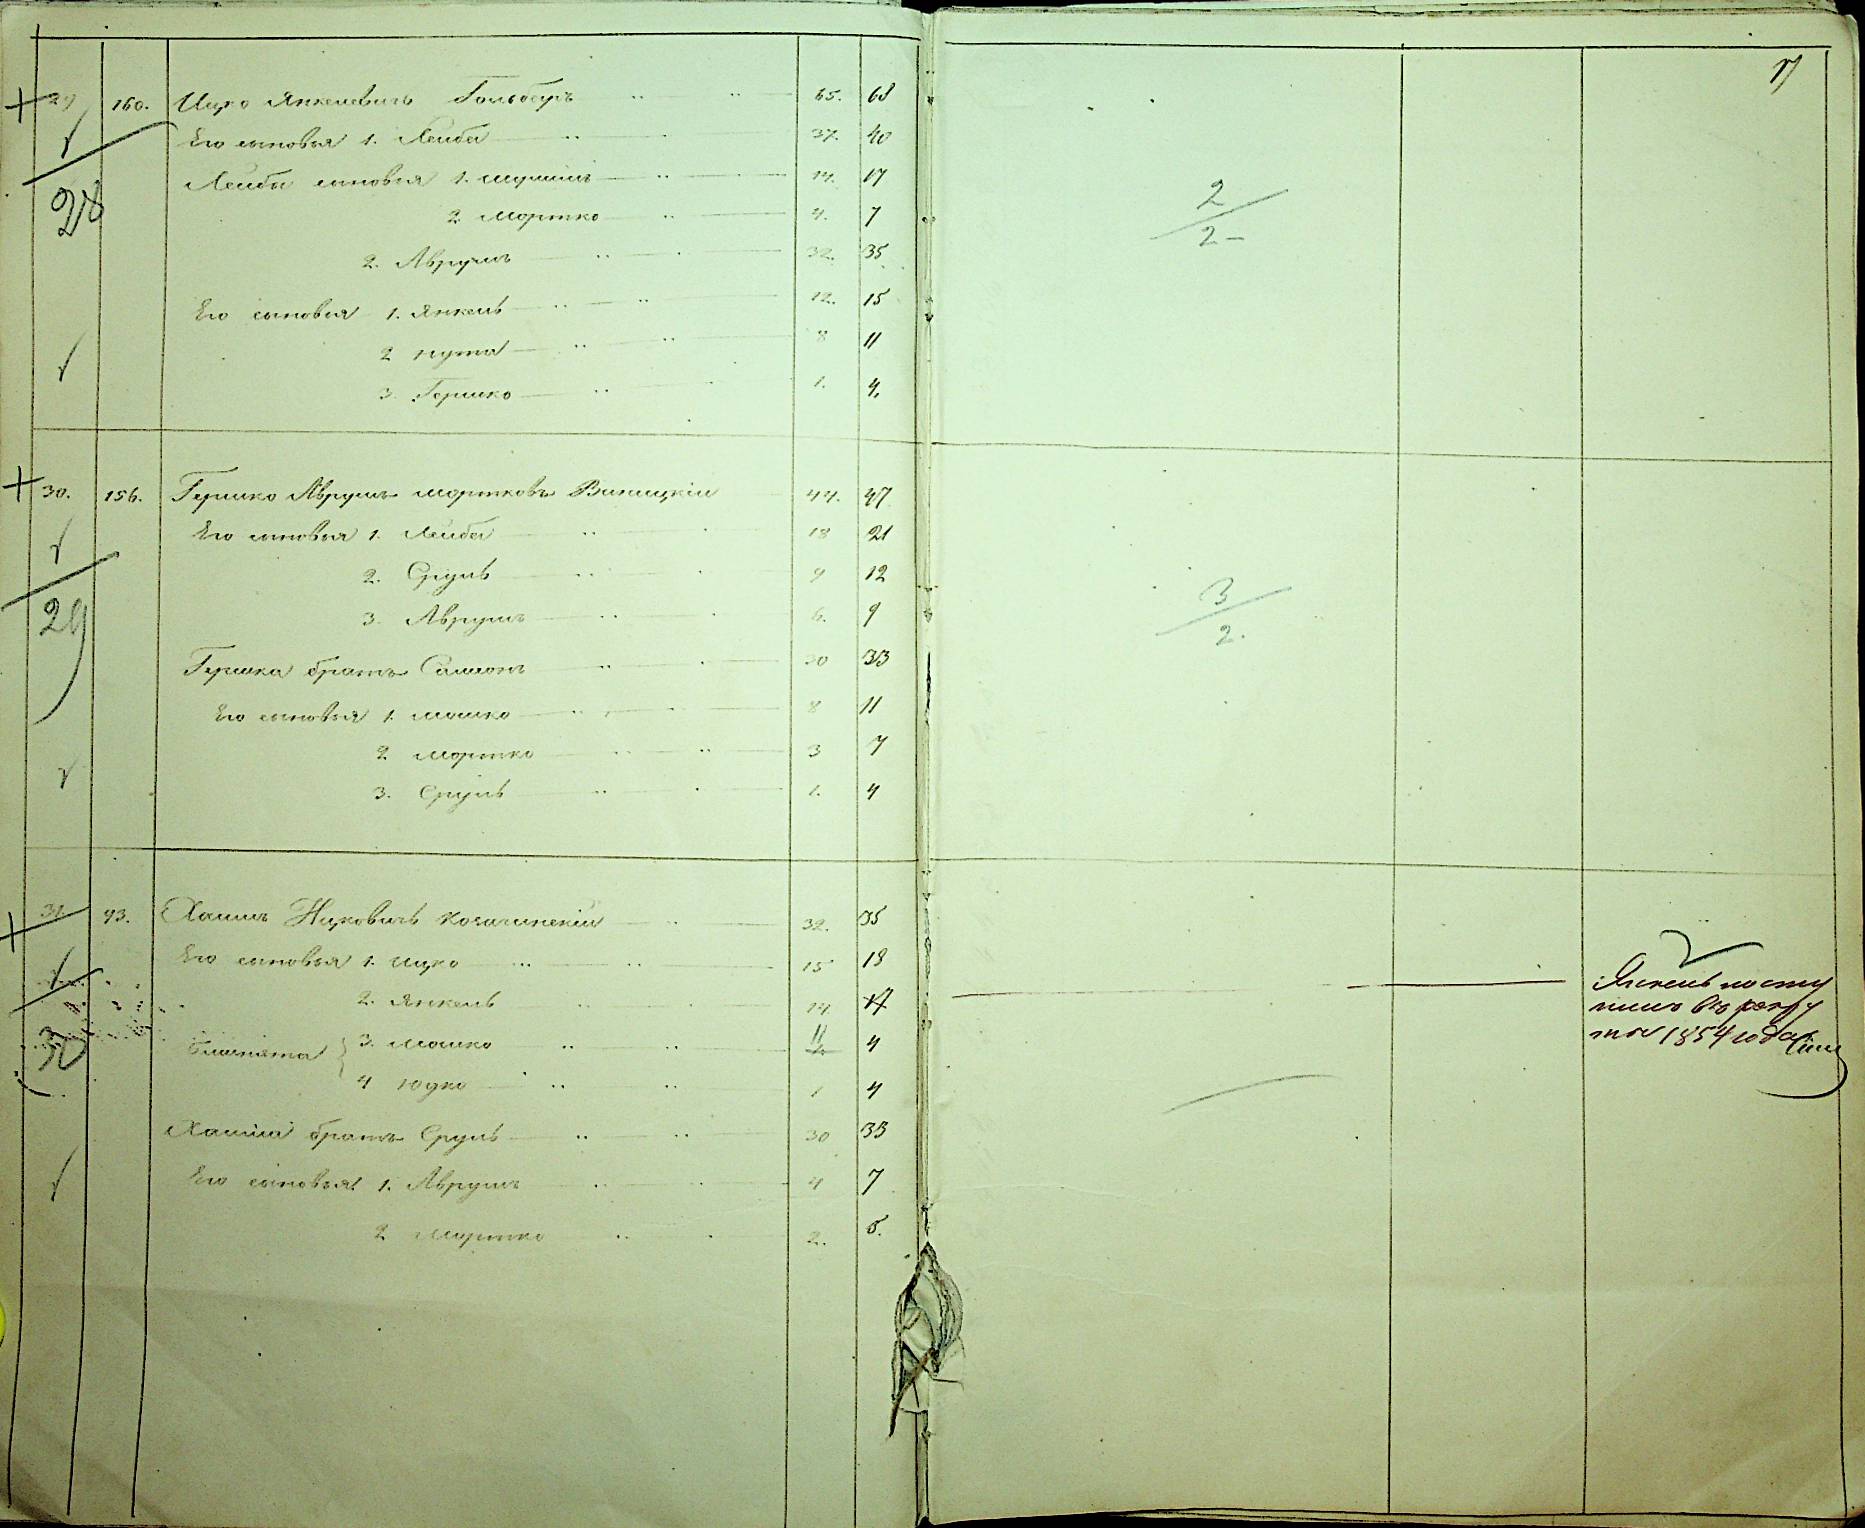 17
29 160. Ицко Янкелевичь 65. 68
28
Его сыновья 1. Лейба 37. 40
Лейбы сыновья 1. 14. 17
2 Мортко 4. 7
2. Аврумъ 32. 35
Его сыновья 1. Янкель 12. 15
2 Нута 8 11
3. Гершко 1. 4
2
2
30. 156. Гершко Аврумъ Мортковъ Виницкій 44. 47
29
Его сыновья 1. Лейба 18 21
2. Сруль 9 12
3. Аврумъ 6. 9
Гершка братъ 30 33
Его сыновья 1. Мошко 8 11
2 Мортко 3 7
3. Сруль 1. 4
3
2.
31 93. Хаимъ Ицковичь 32. 35
30
Его сыновья 1. Ицко 15 18
2. Янкель 14 17
близнята 3. Мошко 4
4 Юдко 1 4
Хаима братъ Сруль 30 33
Его сыновья 1. Аврумъ 4 7
2 Мортко 2. 5.
Янкель посту
пилъ въ рекру
ты 1854 года